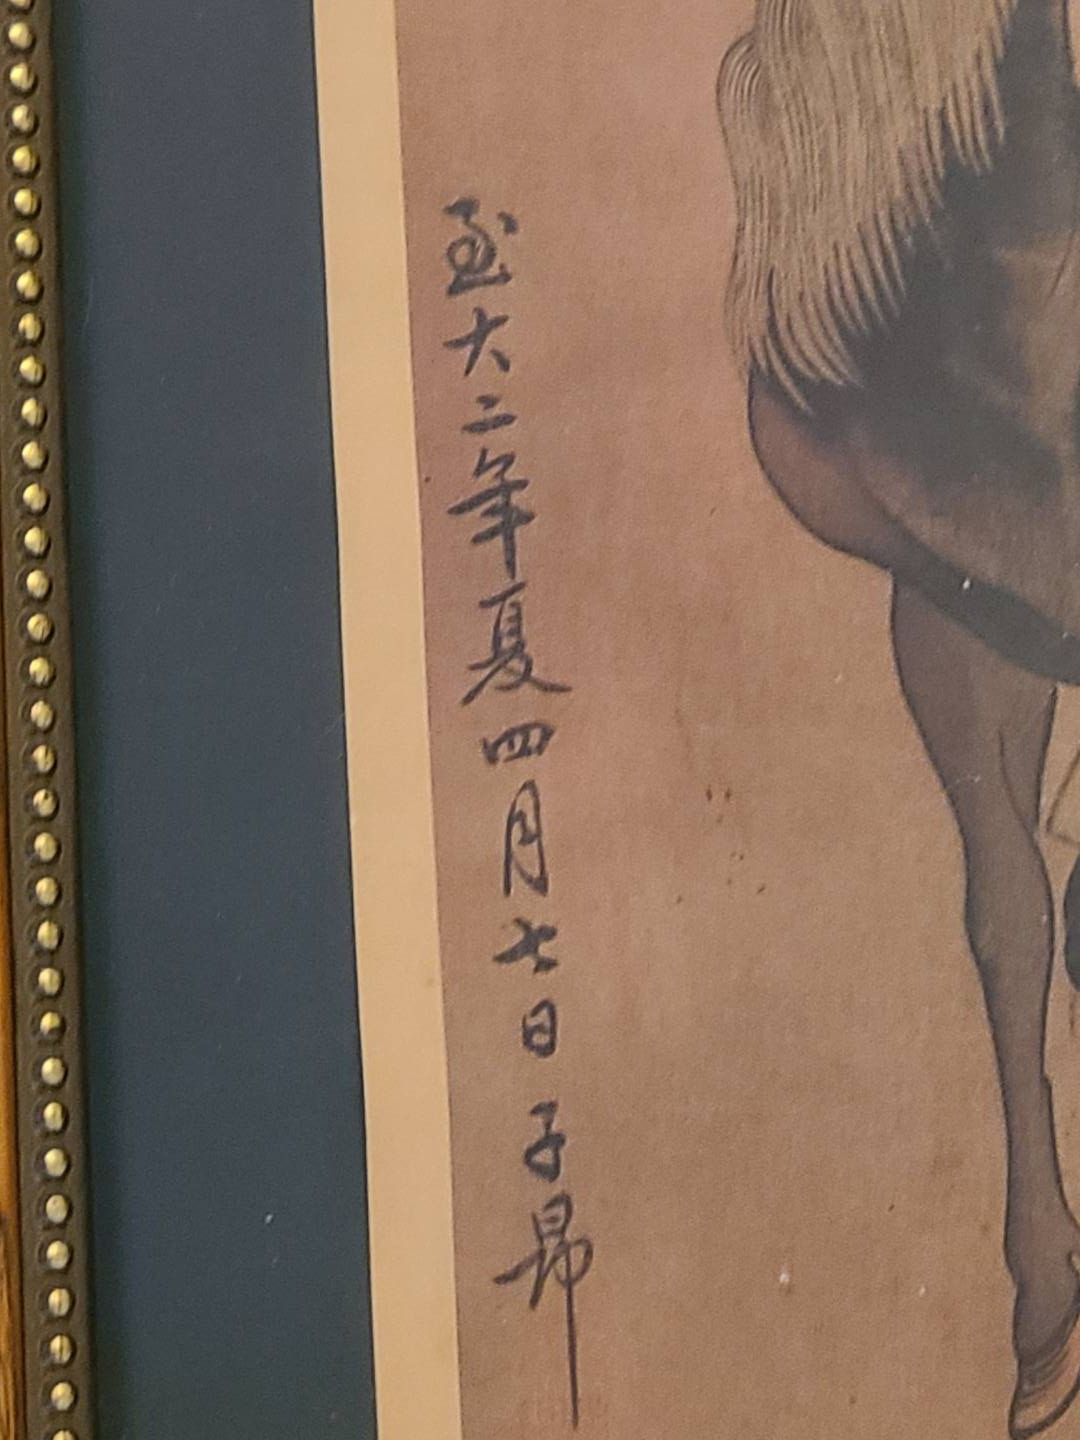 至大二年夏四月七日子昂